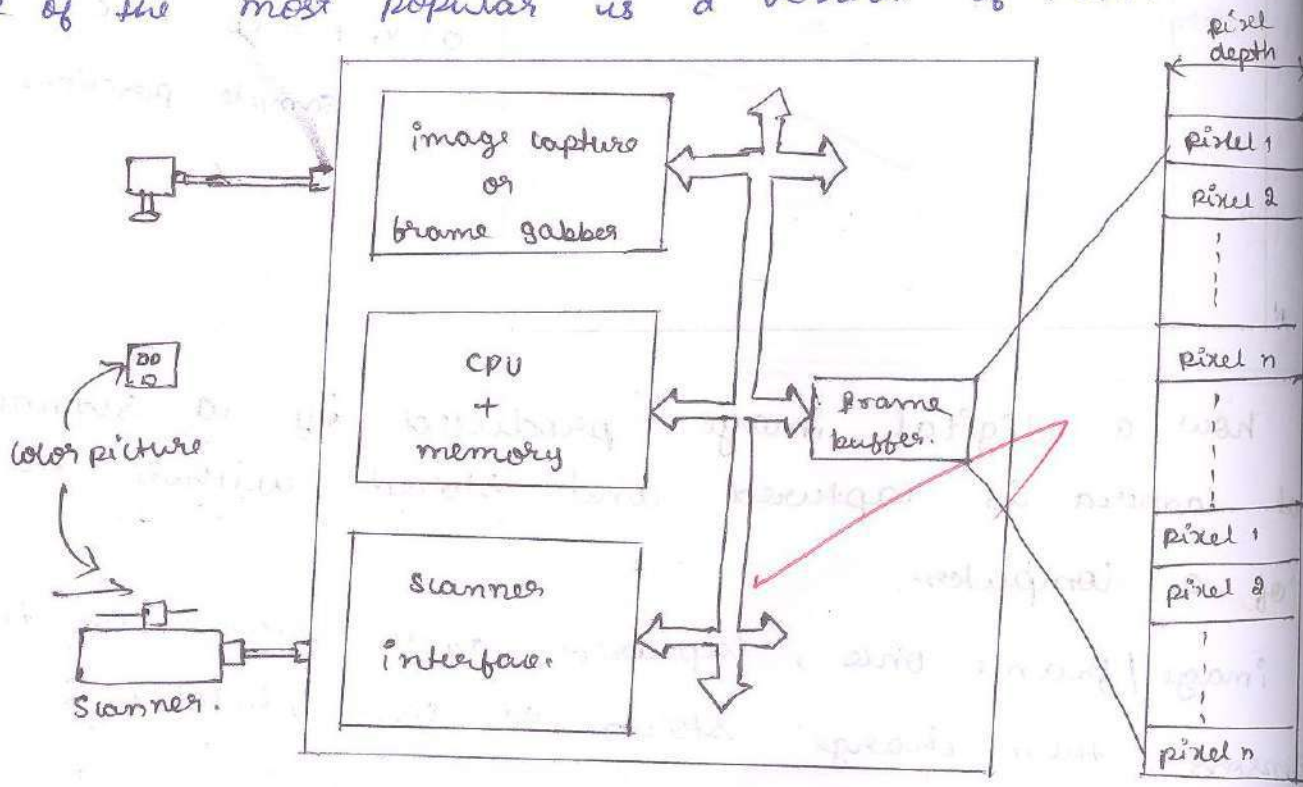 of the most popular is a
pixel
depth
image capture
or
brame gabber
CPU
+
memory
Scanner
interface.
color picture
Scanner.
Frame
buffer.
Pixel 1
Pixel 2
Pixel n
Pixel 1
pixel 2
pixel n